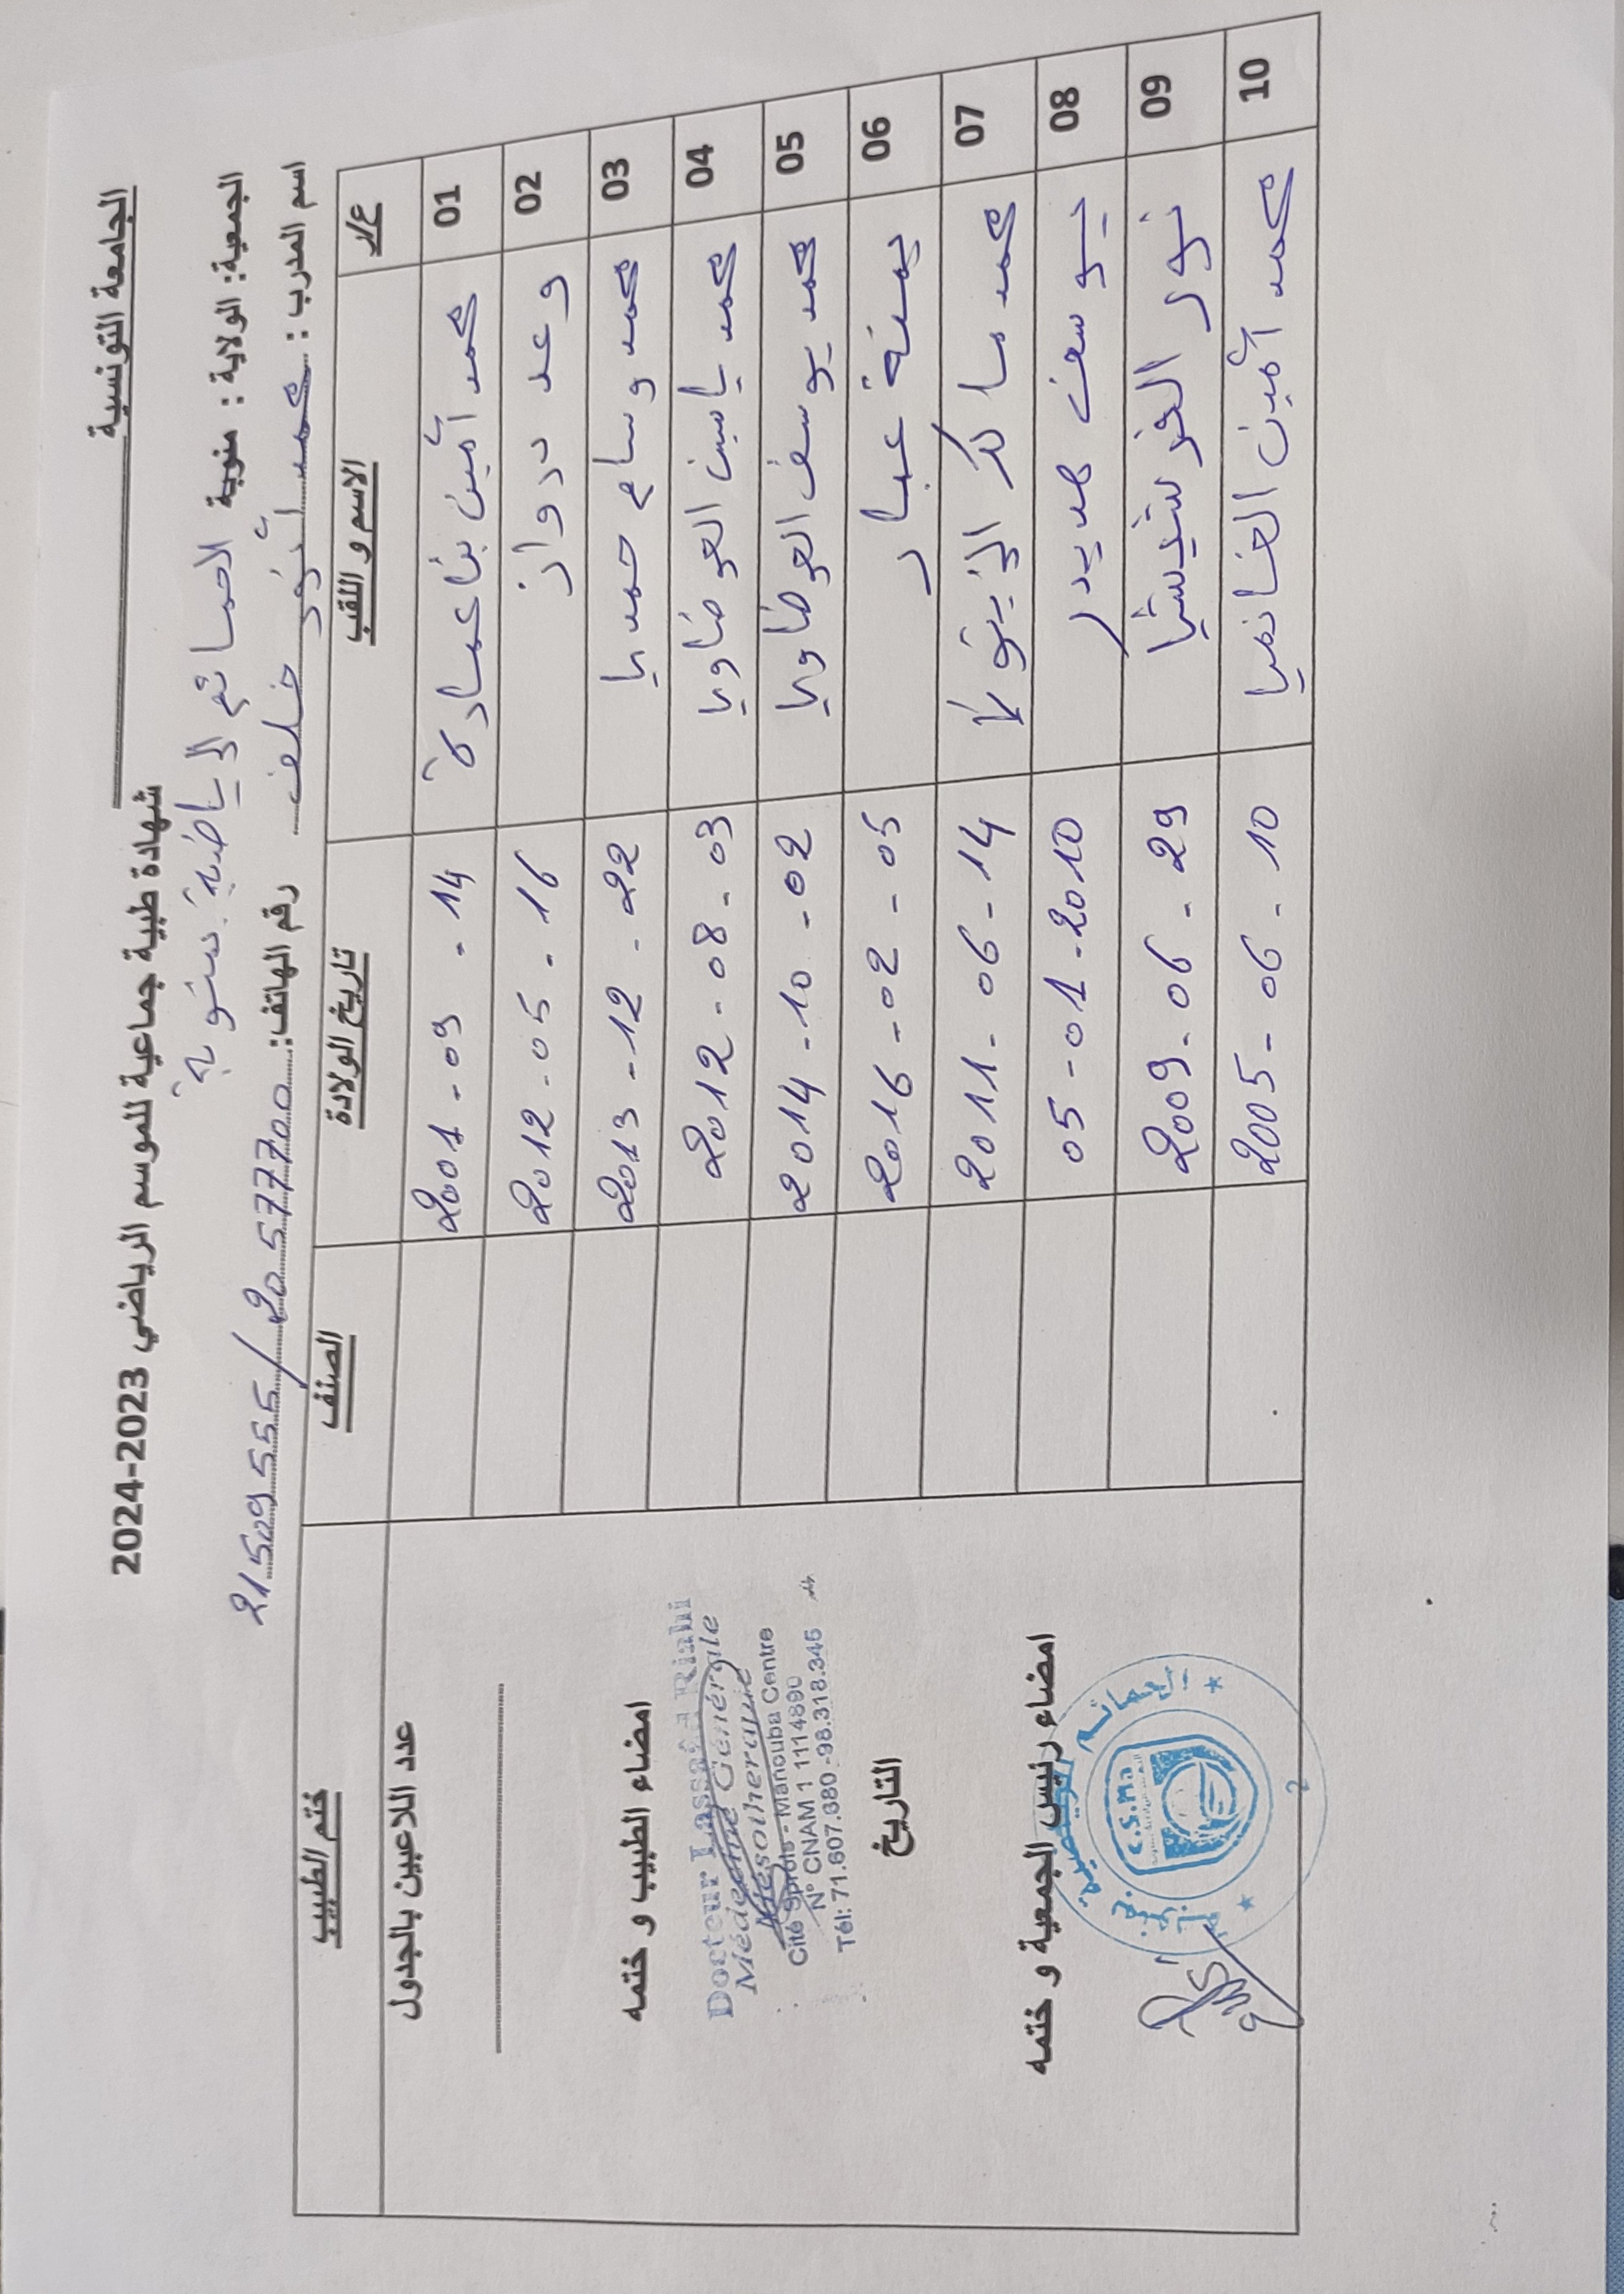 الجامعة التونسية
شهادة طبية جماعية للموسم الرياضي 2023-2024
الجمعية: الولاية : منوبة الحمائم الرياضية بمنوبة
اسم المدرب : محمد أنور خلف رقم الهاتف: 20 577700 / 21509555
ع/ر الاسم و اللقب تاريخ الولادة الصنف ختم الطبيب
01 محمد أمين بنا عمارة 2001 - 09 - 14
02 وعد درواز 2012 - 05 - 16
03 محمد وسام حمدي 2013 - 12 - 22
04 محمد ياسين العوضاوي 2012 - 08 - 03
05 محمد يوسف العوضاوي 2014 - 10 - 02
06 يمنة عبار 2016 - 02 - 05
07 محمد 2011 - 06 - 14
08 يوسف 05 - 01 - 2010
09 نور الفرشيشي 2009 - 06 - 29
10 محمد أمين الغانمي 2005 - 06 - 10
عدد اللاعبين بالجدول
امضاء الطبيب و ختمه
Docteur Lassaad Riahi
Médecine Générale
Mésothérapie
Cité Sprols - Manouba Centre
N° CNAM 1 1114890
Tél: 71.607.680 - 98.318.345
التاريخ
امضاء رئيس الجمعية و ختمه
C.S.Ma